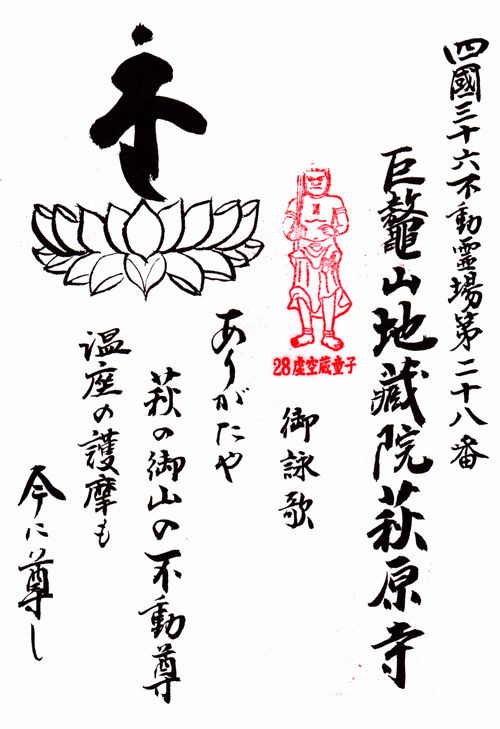 四國三十六不動霊場第二十八番
巨鼇山地蔵院萩原寺
28虚空蔵童子
御詠歌
ありがたや
萩の御山の不動尊
温座の護摩も
今に尊し